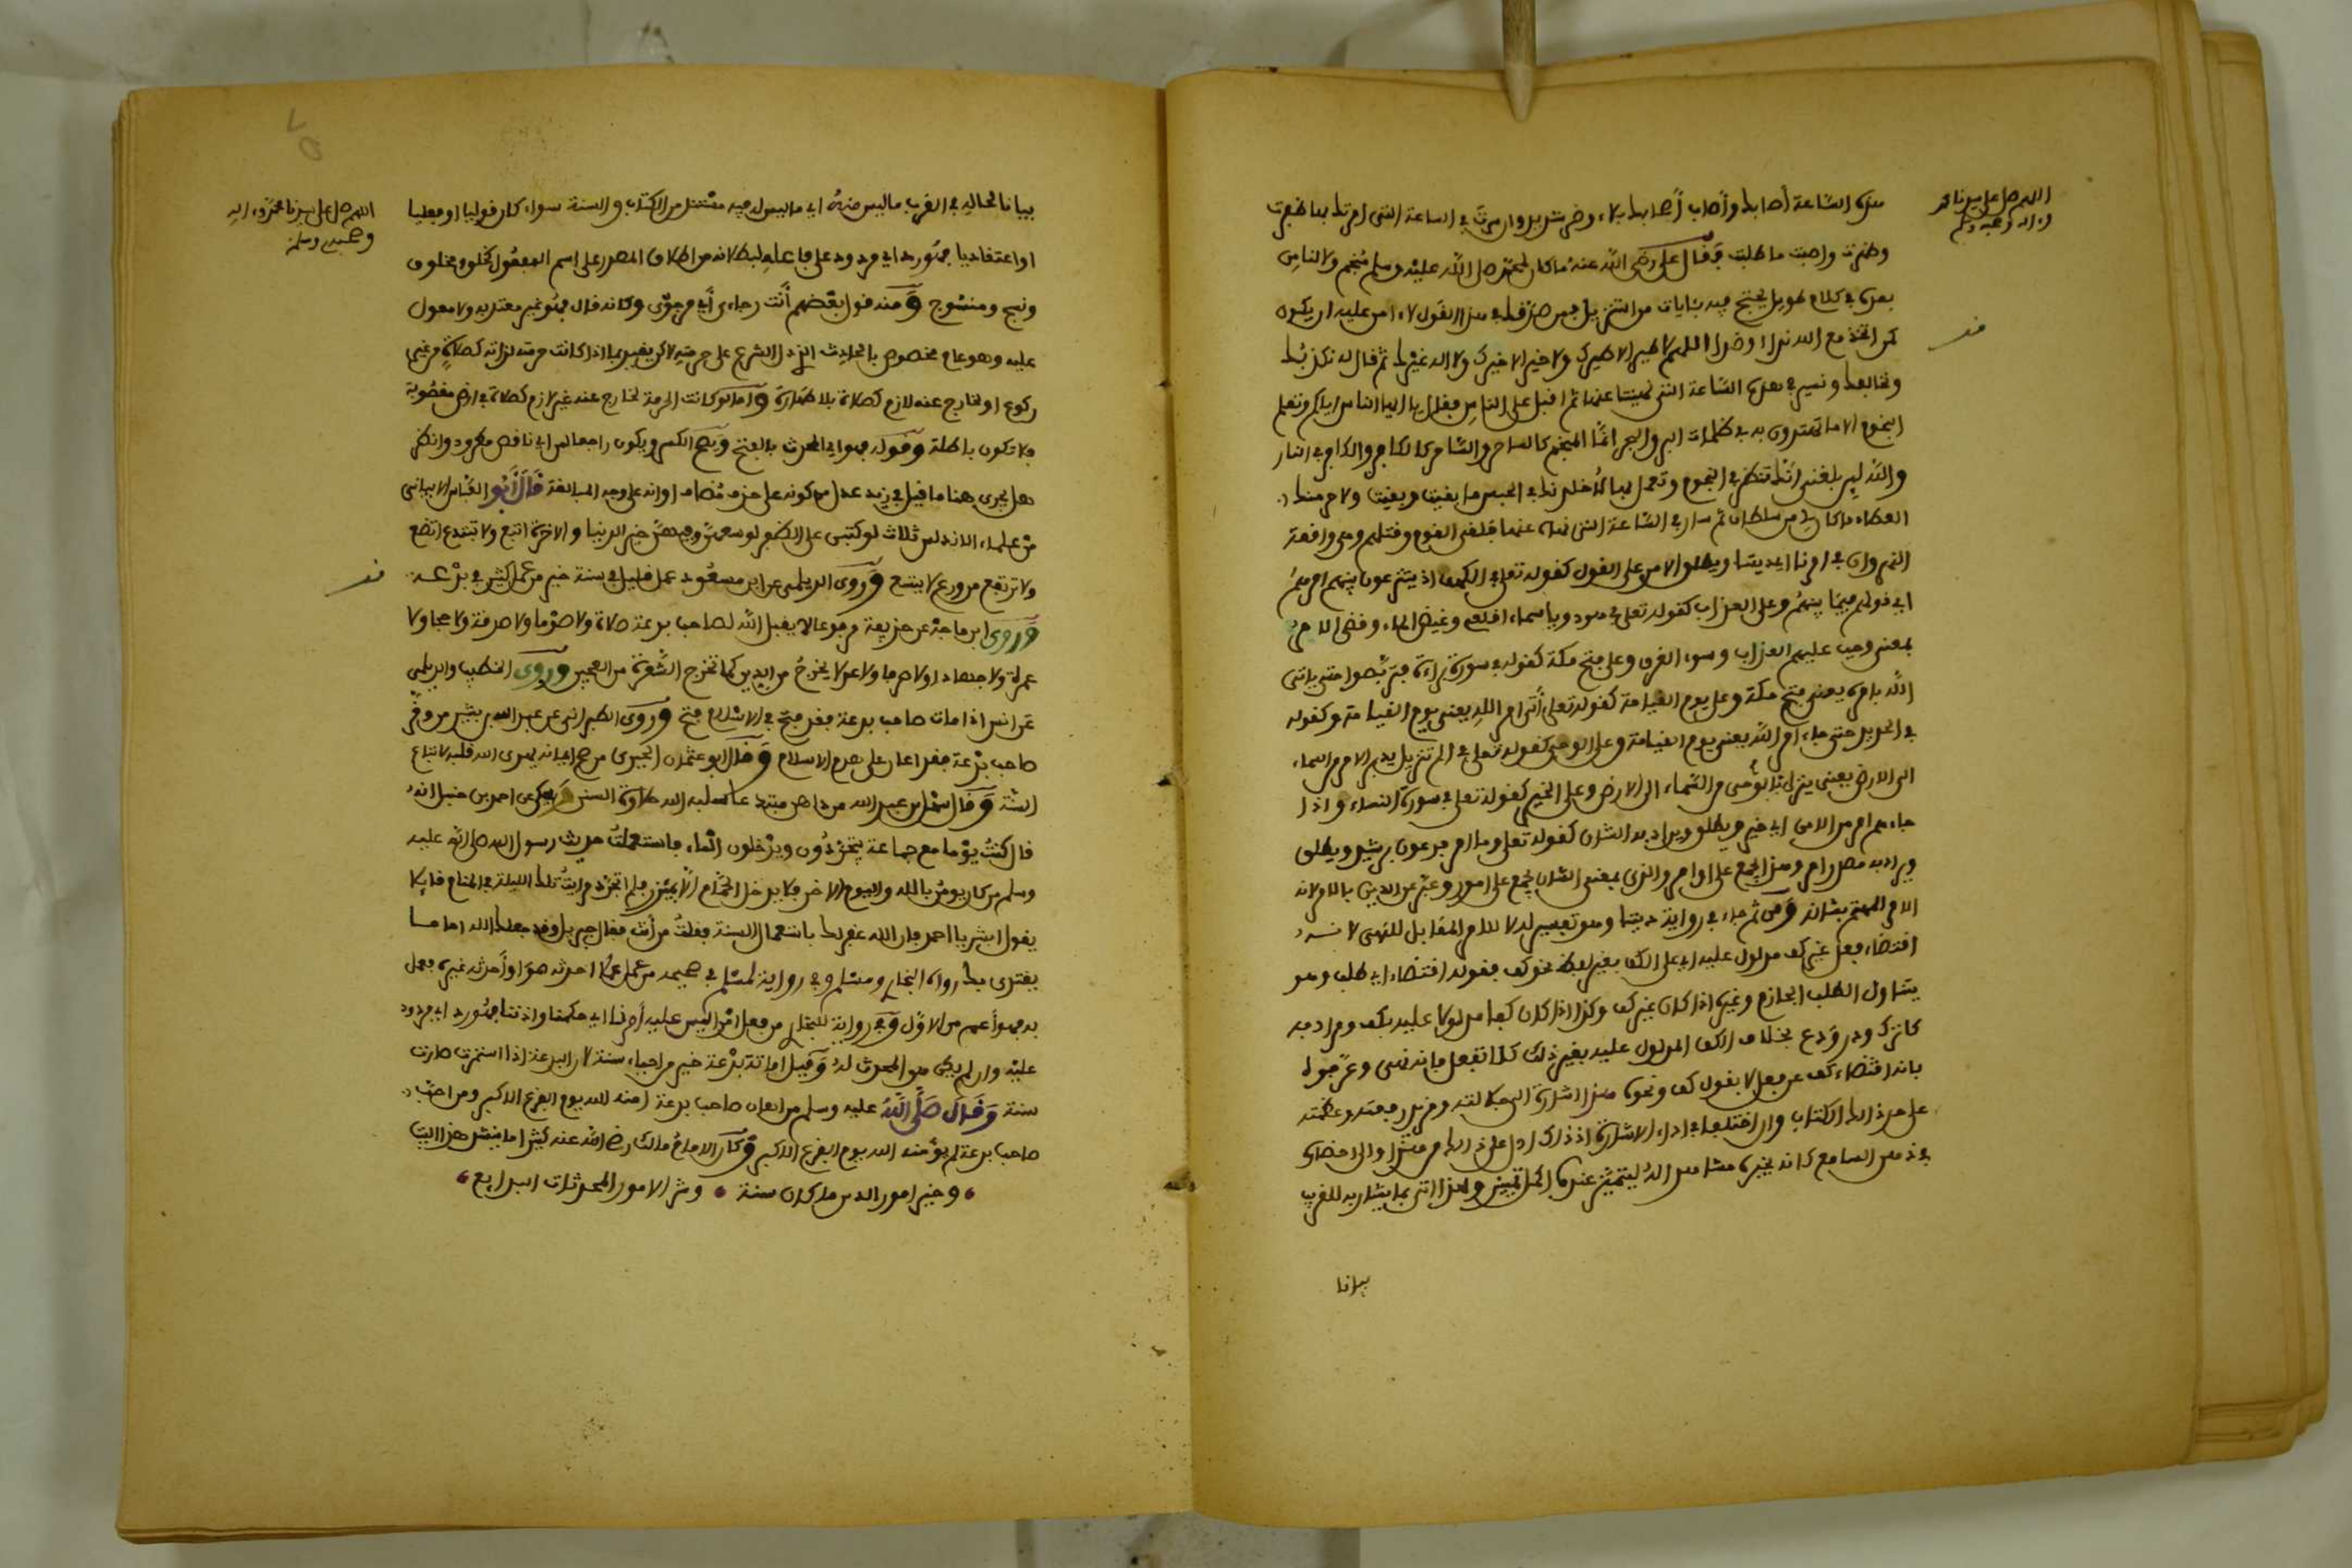 اللهم صل على سيدنا محمد
وءاله وصحبه وسلم
هذه الساعة أصابك وأصاب أصحابك بلاء وضر شديد وان سرت في الساعة التي امرتك بها ظفرت
وظهرت واصبت ما طلبت فقال علي رضي الله عنه ما كان لمحمد صلى الله عليه وسلم منجم ولا للناس
بعده في كلام طويل يحتج فيه بئايات من التنزيل فمن صدقك في هذا القول لم ءامن عليه ان يكون
كمن اتخذ مع الله ندا او ضدا اللهم لا طير الا طيرك ولا خير الا خيرك ولا اله غيرك ثم قال له نكذبك
ونخالفك ونسير في هذه الساعة التي نهيتنا عنها ثم اقبل على الناس فقال يا ايها الناس اياكم وتعلم
النجوم الا ما تهتدون به في ظلمات البر والبحر انما المنجم كالساحر والساحر كالكافر والكافر في النار
والله لين بلغني انك تنظر في النجوم وتعمل بها لاخلدنك في الحبس ما بقيت وبقيت ولاحرمنك
العطاء ما كان لي من سلطان ثم سار في الساعة التي نهاه عنها فلقي القوم وقتلهم وهي وافعة
النهروان في امرنا اي ديننا ويطلق الامر على القول كقوله تعلى في الكهف اذ يتنزعون بينهم امرهم
اي قولهم فيما بينهم وعلى العذاب كقوله تعلى في هود ويا سماء اقلعي وغيض الماء وقضي الامر
بمعنى وجب عليهم العذاب وسوء الغرق وعلى فتح مكة كقوله في سورة براءة فتربصوا حتى ياتي
الله بامره يعني فتح مكة وعلى يوم القيامة كقوله تعلى أتى امر الله يعني يوم القيامة وكقوله
في الحديد حتى جاء امر الله يعني يوم القيامة وعلى الوحي كقوله تعلى في الم تنزيل يدبر الامر من السماء
الى الارض يعني ينزل الوحي من السماء الى الارض وعلى الخبر كقوله تعلى في سورة النساء واذا
جاءهم امر من الامن اي خبر ويطلق ويراد به الشان كقوله تعلى وما امر فرعون برشيد ويطلق
ويراد به مصدر امر وهذا يجمع على اوامر والذي بمعنى الشان يجمع على امور وعبر عن الدين بالامر لانه
الامر المهتم بشانه ومن ثم جاء في رواية ديننا وهو تفسير له لا للامر المقابل للنهي لانه
اقتضاء فعل غير كف مدلول عليه اي على الكف بغير لفظ نحو كف فقوله اقتضاء اي طلب وهو
يتناول الطلب الجازم وغيره اذا كان غير كف وكذا اذا كان كفا مدلولا عليه بكف ومرادفه
كاترك وذر ودع بخلاف الكف المدلول عليه بغير ذلك كلا تفعل فانه نهي وعرفوه
بانه اقتضاء كف عن فعل لا بقول كف ونحوه هذا اشارة الى جلالته ومزيد رفعته وعظمته
على حد ذلك الكتاب وان اختلفا في اداة الاشارة اذ ذلك ادل على ذلك من هذا والى احضاره
في ذهن السامع كانه يخبره مشاهدا له ليتميز عنده اكمل تمييز ولهذا اتى بما يشار به للقريب
بيانا
٧٥
اللهم صل على سيدنا محمد وءاله
وصحبه وسلم
بيانا لحاله في القرب ما ليس منه اي ما ليس له فيه مستند من الكتاب والسنة سواء كان قوليا او فعليا
او اعتقاديا فهو رد اي مردود على فاعله لبطلانه من اطلاق المصدر على اسم المفعول كخلق ومخلوق
ونسج ومنسوج ومنه قول بعضهم أنت رجاءي أي مرجوي وكانه قال فهو غير معتد به ولا معول
عليه وهو عام مخصوص بالحادث الذي دل الشرع على حرمته لاكن يقيد بما اذا كانت حرمته لذاته كصلاة من غير
ركوع او لخارج عنه لازم كصلاة بلا طهارة واما لو كانت الحرمة لخارج عنه غير لازم كصلاة في ارض مغصوبة
فلا تكون باطلة وقوله فهو اي المحدث بالفتح ويصح الكسر ويكون راجعا لمن اي ناقص مطرود وانظر
هل يجري هنا ما قيل في زيد عدل من كونه على حذف مضاف او انه على وجه المبالغة قال أبو العباس الابياني
من علماء الاندلس ثلاث لو كتبن على الظفر لوسعهن وفيهن خير الدنيا والاخرة اتبع ولا تبتدع اتضع
ولا ترتفع من ورع لا يتسع وروى الديلمي عن ابن مسعود عمل قليل في سنة خير من عمل كثير في بدعة
وروى ابن ماجة عن حذيفة مرفوعا لا يقبل الله لصاحب بدعة صلاة ولا صوما ولا صدقة ولا حجا ولا
عمرة ولا جهادا ولا صرفا ولا عدلا يخرج من الدين كما تخرج الشعرة من العجين وروى الخطيب والديلمي
عن انس اذا مات صاحب بدعة فقد فتح في الاسلام فتح وروى الطبراني عن عبد الله بن بشير من وقر
صاحب بدعة فقد اعان على هدم الاسلام وقال ابو عثمان الحيري من صح ايمانه يهدى الله قلبه لاتباع
السنة وقال سهل بن عبد الله من داهن مبتدعا سلبه الله حلاوة السنن وحكي عن احمد بن حنبل انه
قال كنت يوما مع جماعة يتجردون ويدخلون الماء فاستعملت حديث رسول الله صلى الله عليه
وسلم من كان يومن بالله واليوم الاخر فلا يدخل الحمام الا بمئزر فلم اتجرد فرايت تلك الليلة في المنام قائلا
يقول ابشر يا احمد فان الله غفر لك باستعمال السنة فقلت من أنت فقال جبريل وقد جعلك الله اماما
يقتدى بك رواه البخاري ومسلم وفي رواية لمسلم في صحيحه من عمل عملا احدثه هو او أحدثه غيره فعمل
به فهو أعم من الاول وفي رواية للبخاري من فعل امرا ليس عليه أمرنا اي حكمنا واذننا فهو رد اي مردود
عليه وان لم يكن هو المحدث له وقيل اماتة بدعة خير من احياء سنة لان البدعة اذا استمرت صارت
سنة وقال صلى الله عليه وسلم من اهان صاحب بدعة امنه الله يوم الفزع الاكبر ومن احب
صاحب بدعة لم يؤمنه الله يوم الفزع الاكبر وكان الامام مالك رضي الله عنه كثيرا ما ينشد هذا البيت
وخير امور الدين ما كان سنة وشر الامور المحدثات البدايع